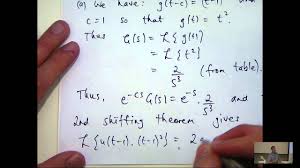 (a) We have: g(t-c) = (t-1)² and
c=1 so that g(t) = t².
Thus G(s) = ℒ{g(t)}
= ℒ{t²}
= 2/s³ (from table).
Thus, e^{-cs} G(s) = e^{-s} · 2/s³ and
2nd shifting theorem gives
ℒ{u(t-1) · (t-1)²} = 2